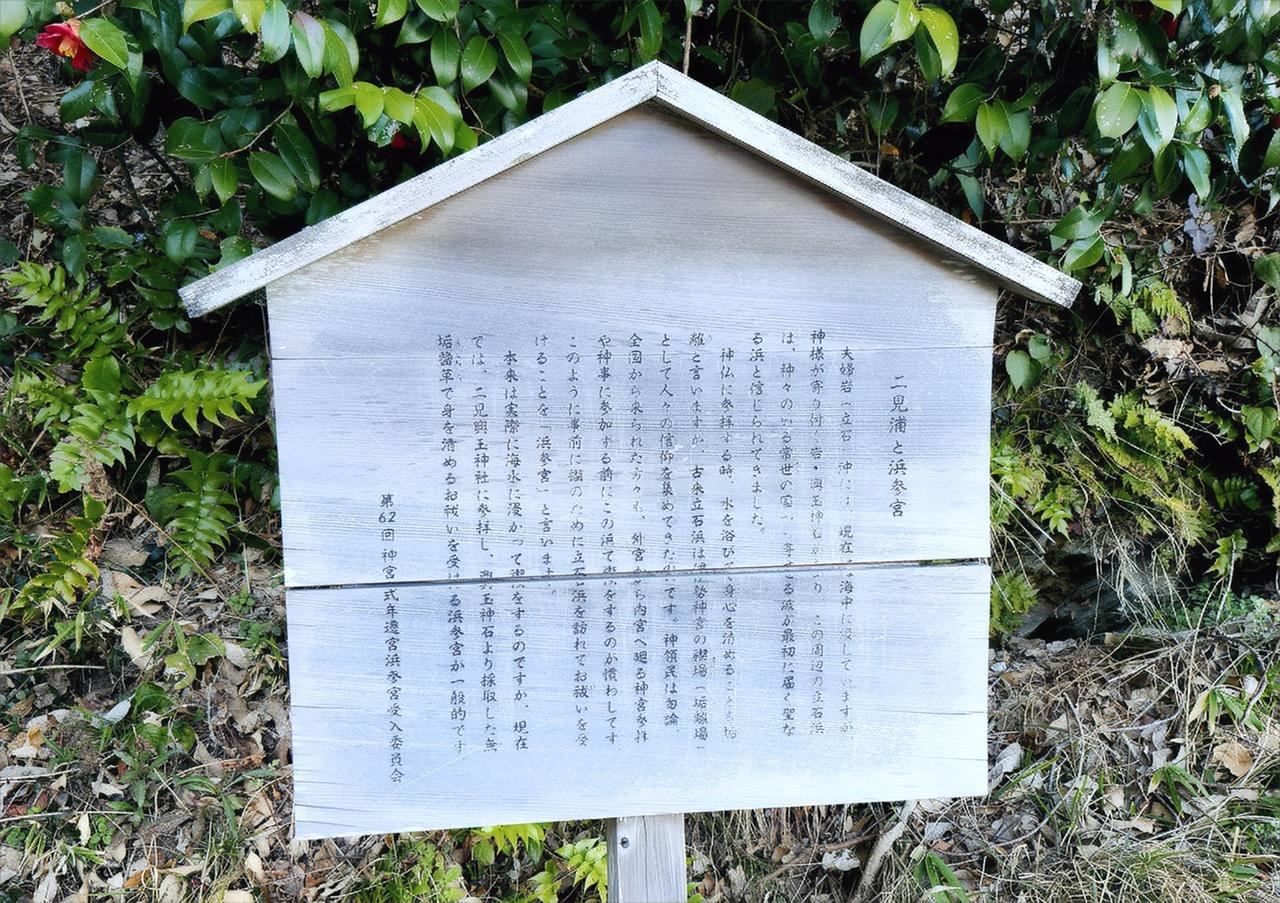 二見浦と浜参宮
夫婦岩（立石）沖には、現在は海中に没していますが
神様が寄り付く岩・興玉神石があり、この周辺の立石浜
は、神々のいる常世の国から寄せる波が最初に届く聖な
る浜と信じられてきました。
神仏に参拝する時、水を浴びて身心を清めることを垢
離と言いますが、古来立石浜は伊勢神宮の禊場（垢離場）
として人々の信仰を集めてきたのです。神領民は勿論、
全国から来られた方々も、外宮から内宮へ廻る神宮参拝
や神事に参加する前にこの浜で禊をするのが慣わしです
このように事前に禊のために立石浜を訪れてお祓いを受
けることを「浜参宮」と言います。
本来は実際に海水に浸かって禊をするのですが、現在
では、二見興玉神社に参拝し、興玉神石より採取した無
垢鹽草で身を清めるお祓いを受ける浜参宮が一般的です
第62回神宮式年遷宮浜参宮受入委員会